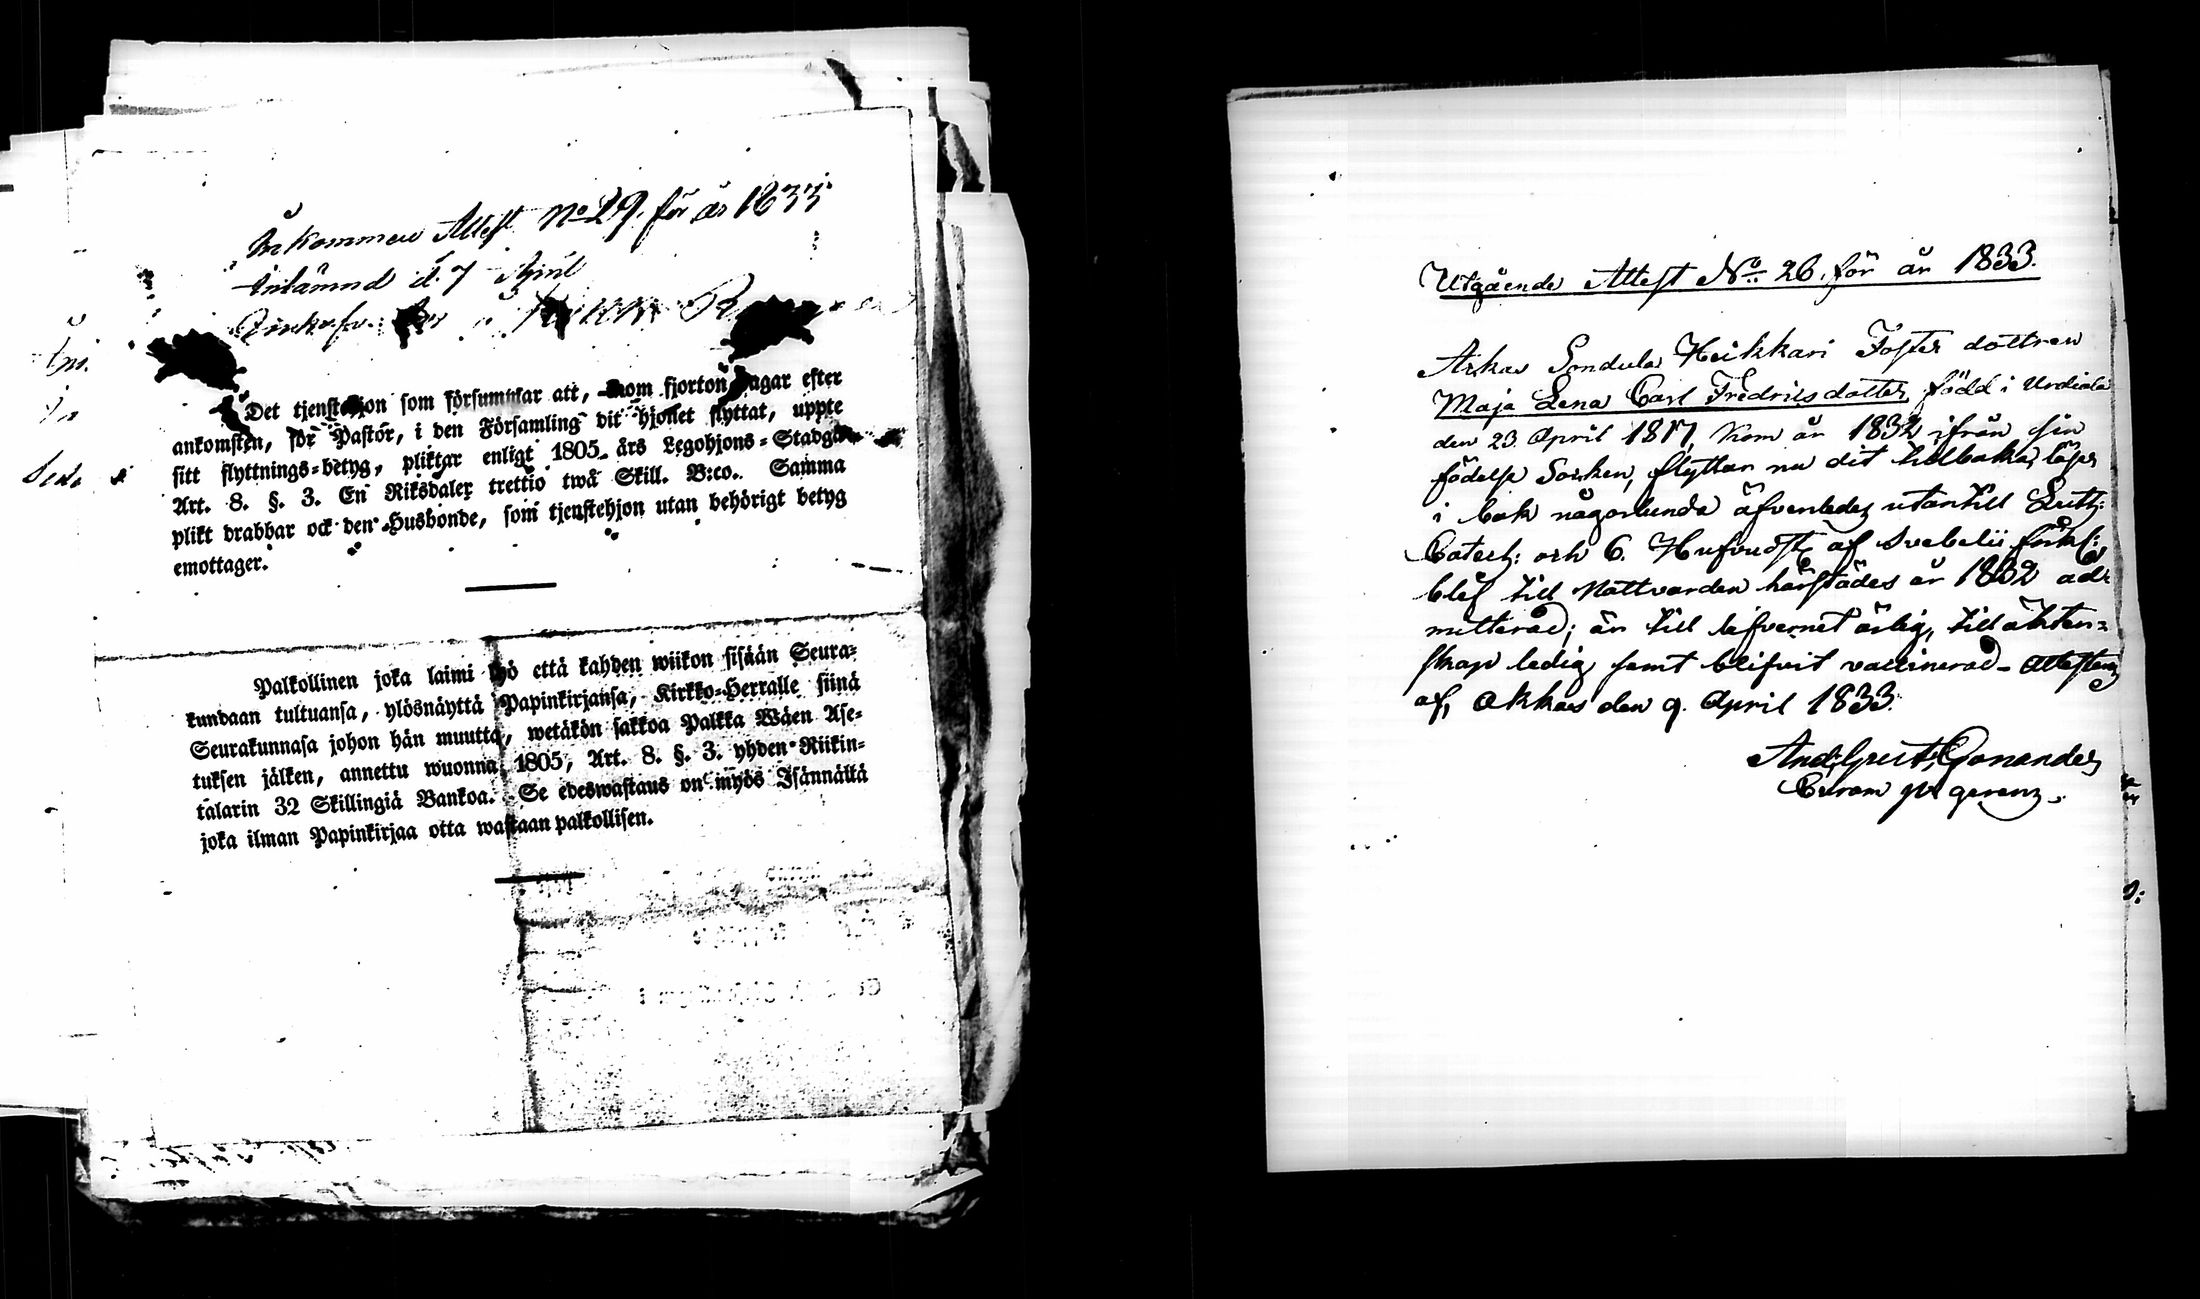 Inkommen Attest No 29. för år 1833
Inlämnd d. 7 April
Det tjenstehjon som försummar att, inom fjorton dagar efter
ankomsten, för Pastor, i den Församling dit hjonet flyttat, uppte
sitt flyttnings-betyg, pliktar enligt 1805 års Legohjons-Stadga
Art. 8. §. 3. En Riksdaler trettio twå Skill. B:co. Samma
plikt drabbar ock den Husbonde, som tjenstehjon utan behörigt betyg
emottager.
Palkollinen joka laimi lyö että kahden wiikon sisään Seura-
kundaan tultuansa, ylösnäyttä Papinkirjansa, Kirkko-Herralle siinä
Seurakunnasa johon hän muutta, wetäkön sakkoa Palkka Wäen Ase-
tuksen jälken, annettu wuonna 1805, Art. 8. §. 3. yhden Riikin-
talarin 32 Skillingiä Bankoa. Se edeswastaus on myös Isännällä
joka ilman Papinkirjaa otta wastaan palkollisen.
Utgående Attest No 26. för år 1833.
Sondula Heikkari Foster dottren
Maja Lena Carl Fredricsdotter, född i Urdiala
den 23 April 1817, kom år 1832 ifrån sin
födelse Socken, flyttar nu dit tillbaka, läser
i bok någorlunda äfvenledes utantill Luth:
Catech: och 6. Hufvudst. af Svebelii förkl:
blef till Nattvarden härstädes år 1832 ad-
mitterad; är till lefvernet ärlig, till äkten=
skap ledig samt blifvit vaccinerad - Attesteras
af, Akkas den 9. April 1833.
And: Gust: Gonander
Curam p. gerens.